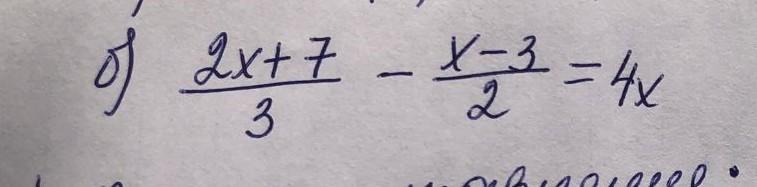 б) (2x+7)/3 - (x-3)/2 = 4x